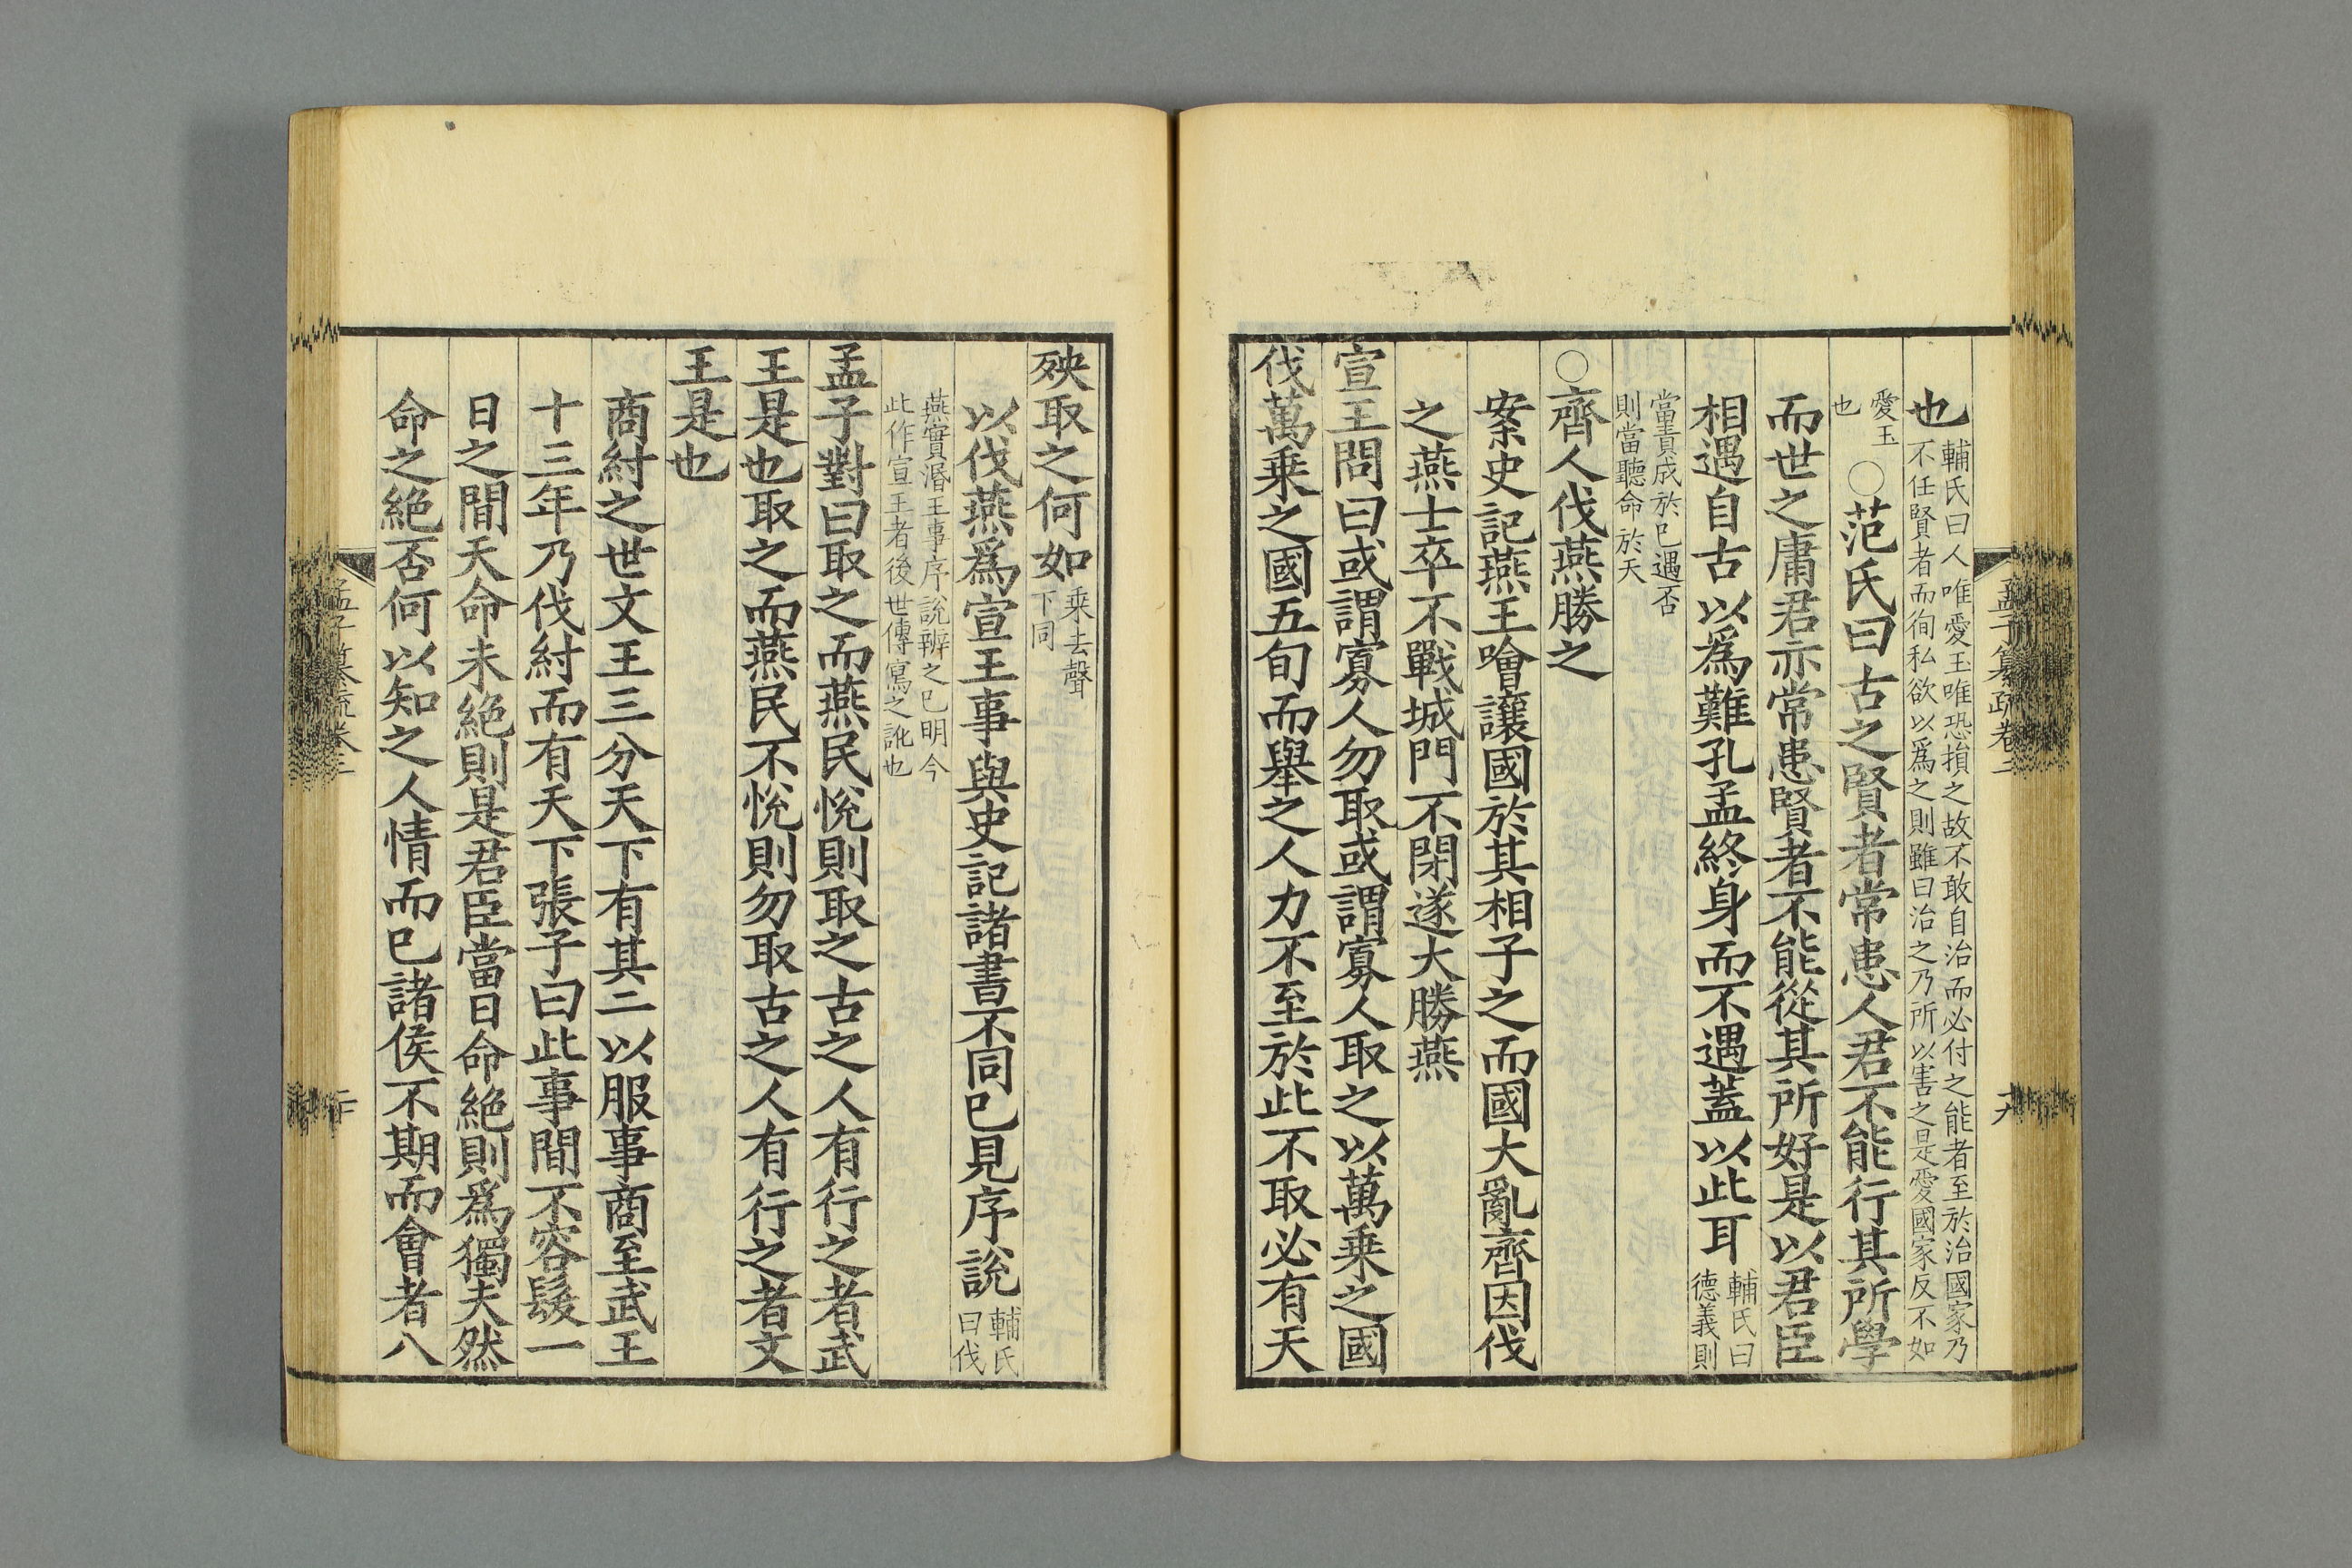 也輔氏曰人唯愛玉唯恐損之故不敢自治而必付之能者至於治國家乃
不任賢者而徇私欲以爲之則雖曰治之乃所以害之是愛國家反不如
愛玉
也○范氏曰古之賢者常患人君不能行其所學
而世之庸君亦常患賢者不能從其所好是以君臣
相遇自古以爲難孔孟終身而不遇蓋以此耳輔氏曰
德義則
當責成於已遇否
則當聽命於天
○齊人伐燕勝之
案史記燕王噲讓國於其相子之而國大亂齊因伐
之燕士卒不戰城門不閉遂大勝燕
宣王問曰或謂寡人勿取或謂寡人取之以萬乗之國
伐萬乗之國五旬而舉之人力不至於此不取必有天
孟子纂疏卷二
十九
殃取之何如乗去聲
下同
以伐燕爲宣王事與史記諸書不同已見序說輔氏
曰伐
燕實湣王事序說辨之已明今
此作宣王者後世傳寫之訛也
孟子對曰取之而燕民悅則取之古之人有行之者武
王是也取之而燕民不悅則勿取古之人有行之者文
王是也
商紂之世文王三分天下有其二以服事商至武王
十三年乃伐紂而有天下張子曰此事間不容髮一
日之間天命未絕則是君臣當日命絕則爲獨夫然
命之絕否何以知之人情而已諸侯不期而會者八
孟子纂疏卷二
二十